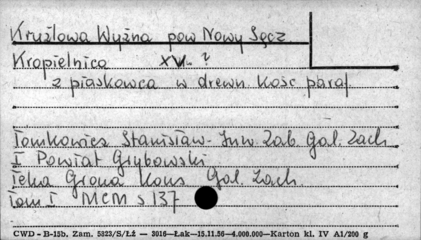 Kruźlowa Wyżna pow Nowy Sącz
Kropielnica XV.. ?
z piaskowca w drewn. kośc paraf.
Tomkowicz Stanisław - Inw. Zab. Gal. Zach
I Powiat Grybowski
Teka Grona Kons Gal. Zach.
Tom I MCM s 137
CWD - B-15b. Zam. 5823/S/Łż — 3016—Łak—15.11.56—4.000.000—Karton kl. IV A1/200 g